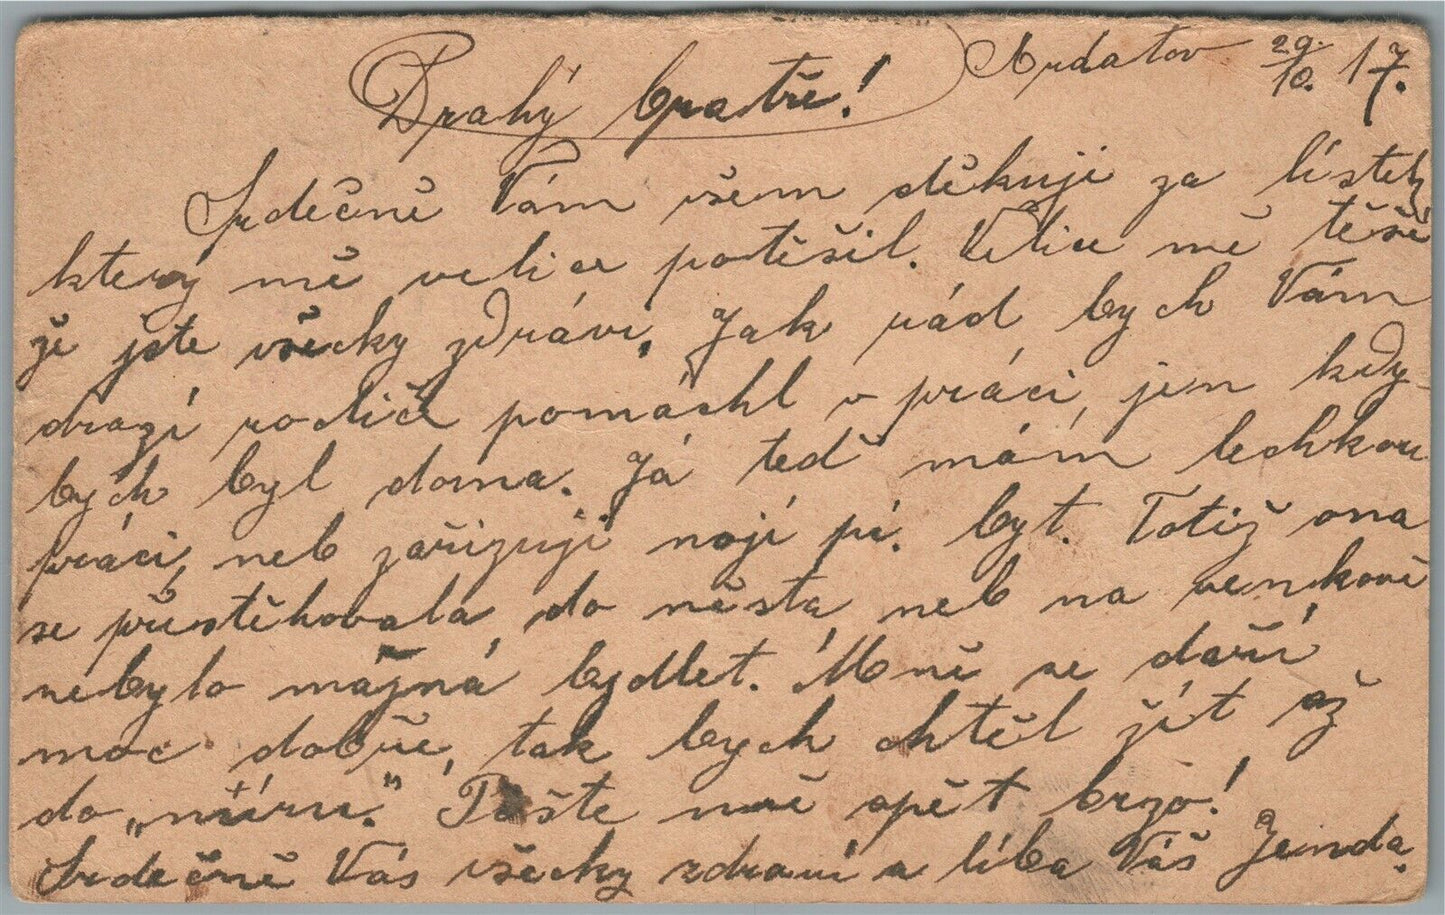 Ardatov 29./10. 17.
Drahý bratře!
Srdečně Vám všem děkuji za lístek
který mě velice potěšil. Velice mě těší
že jste všecky zdrávi. Jak rád bych Vám
drazí rodiče pomáchl v práci, jen kdy
bych byl doma. Já teď mám lechkou
práci, neb zařizuji nají pí. byt. Totiž ona
se přestěhovala do města, neb na venkově
nebylo májná bydlet. Mně se daří
moc dobře, tak bych chtěl žít až
do „míru." Pište mě opět brzo!
Srdečně Vás všecky zdraví a líba Váš Jenda.